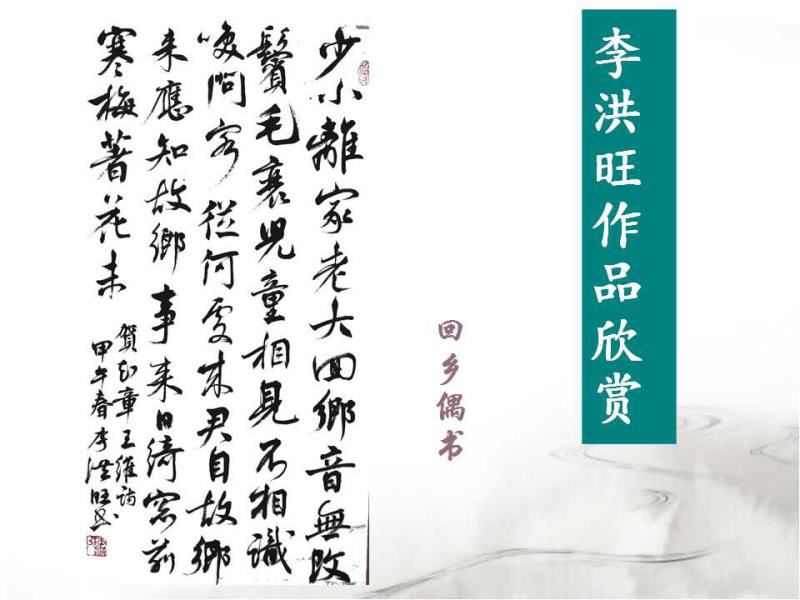 李洪旺作品欣赏
回乡偶书
少小離家老大回鄉音無改
鬢毛衰兒童相見不相識
咲問客從何處来君自故鄉
来應知故鄉事来日綺窓前
寒梅著花未
賀知章王維詩
甲午春李洪旺書